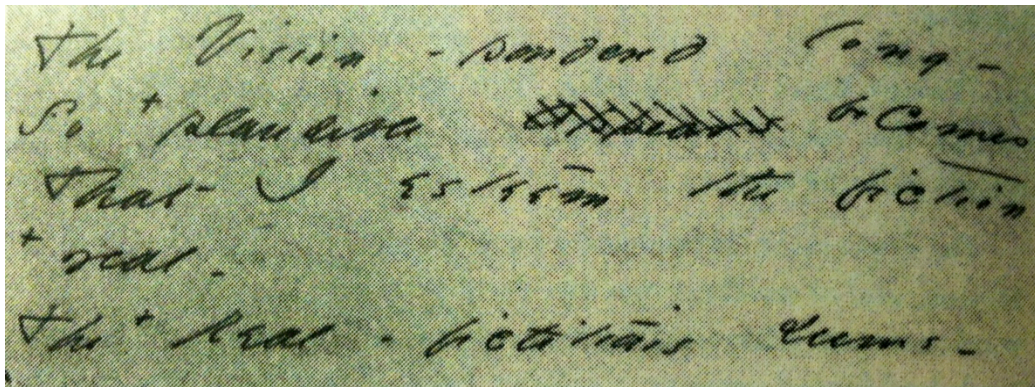 The Vision - pondered long -
So + plausible becomes
That I esteem the fiction
+ real -
The + Real - fictitious seems -